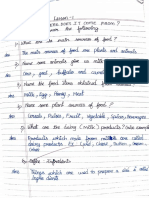 Lesson - 1
WHERE DOES IT COME FROM?
Answer the following
1) What are the main sources of food?
Ans The main sources of food are plants and animals
2) Name some animals give us milk?
Ans Cow, goat, buffalo and camel
3) Name the food items obtained from animals
Ans Milk, Egg, Honey, Meat
4) Name some plant sources of food?
Ans Cereals, Pulses, Fruits, Vegetables, Spices, Beverages
5) What are the dairy (milk) products?
Ans Products which made from milk are called
dairy products. Ex: Curd, Ghee, Butter, Cheese
etc.
6) Define Ingredients
Ans Things which are used to prepare a dish is called
ingredients